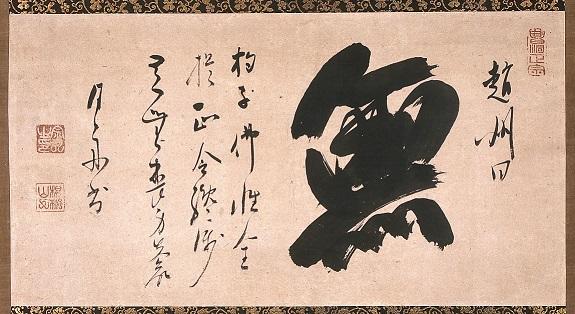 趙州曰
無
狗子佛性全
提正令纔涉
有無喪身失命
月舟書